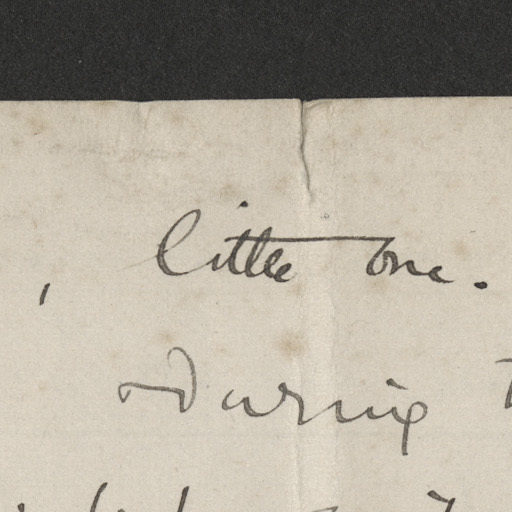 , little one.
During